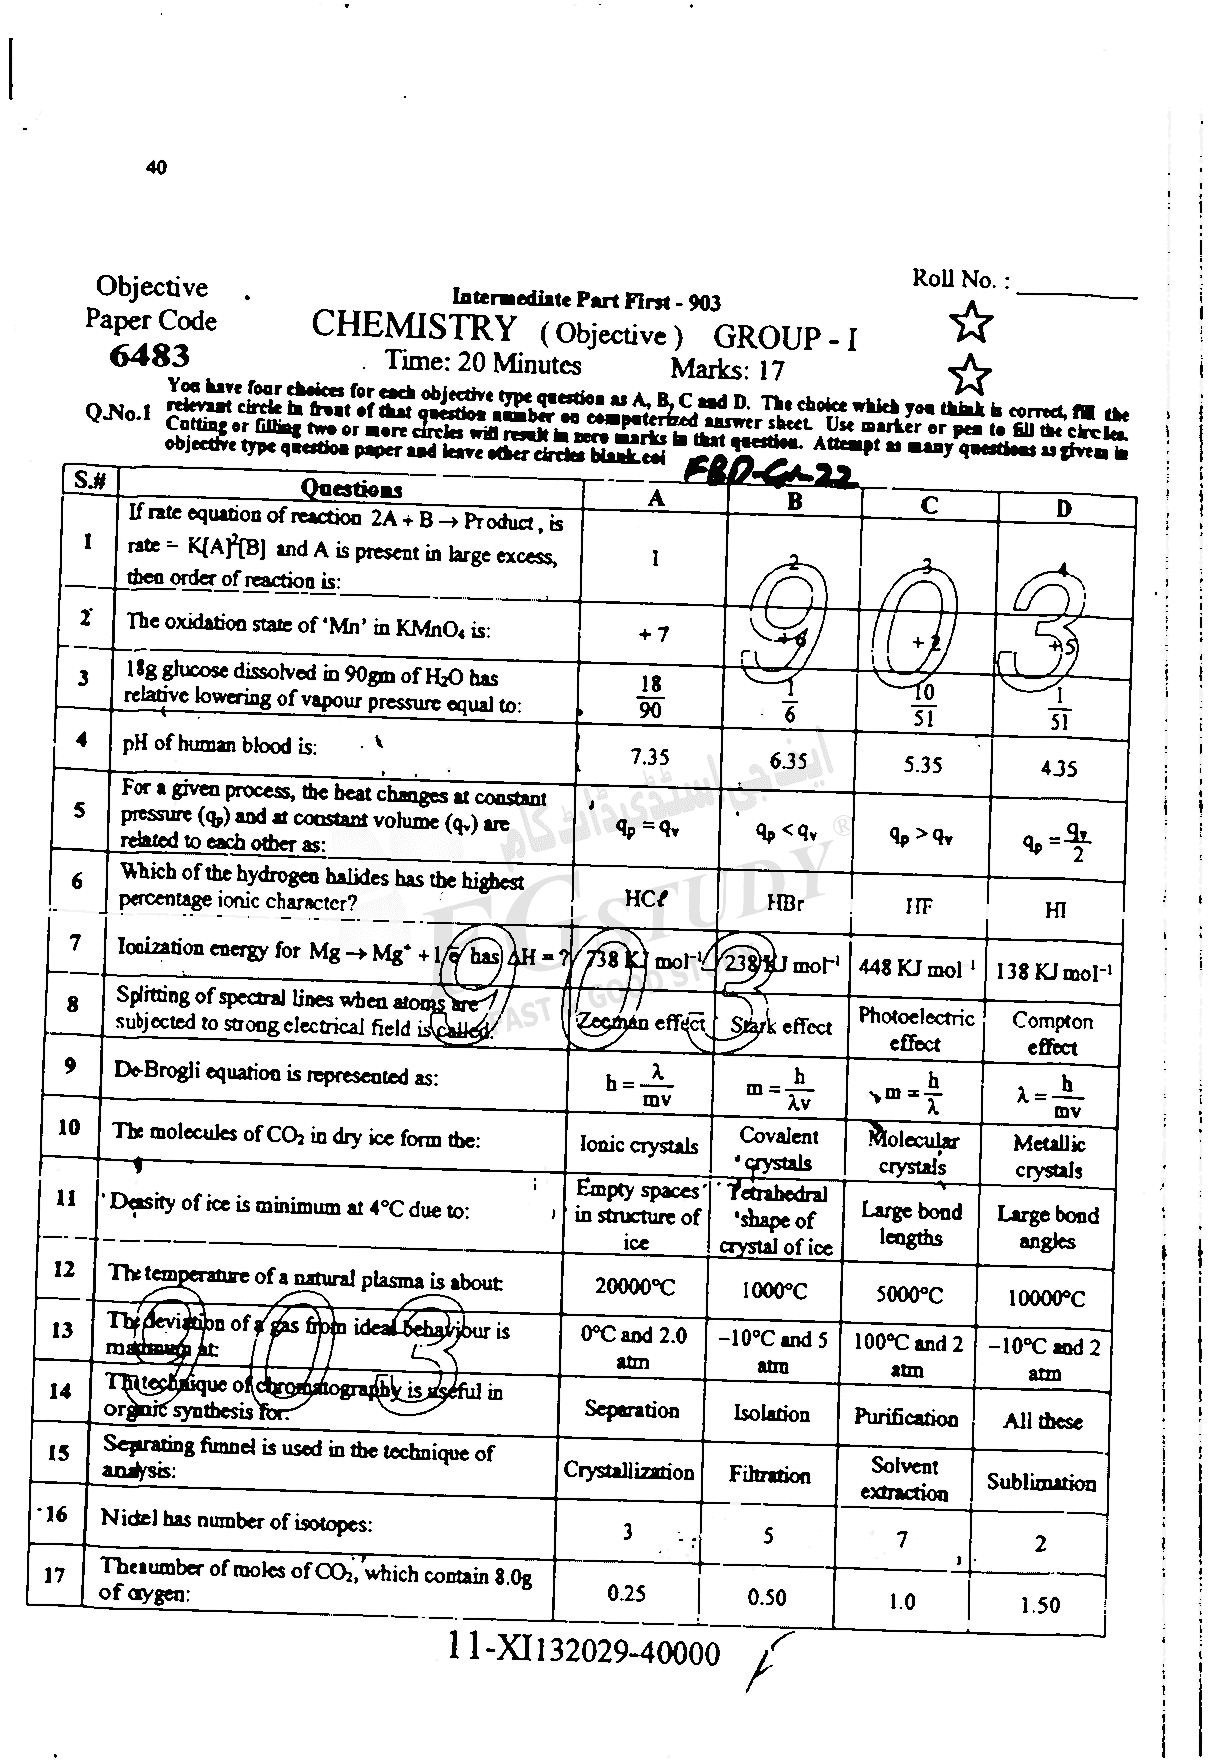 40
Objective
Paper Code
6483
Intermediate Part First - 903
CHEMISTRY (Objective) GROUP - I
Time: 20 Minutes Marks: 17
Roll No. :
Q.No.1 You have four choices for each objective type question as A, B, C and D. The choice which you think is correct, fill the
relevant circle in front of that question number on computerized answer sheet. Use marker or pen to fill the circles.
Cutting or filling two or more circles will result in zero marks in that question. Attempt as many questions as given in
objective type question paper and leave other circles blank.
FBD-G1-22
S.# Questions A B C D
1 If rate equation of reaction 2A + B → Product, is
rate = K[A]²[B] and A is present in large excess,
then order of reaction is: 1 2 3 4
2 The oxidation state of 'Mn' in KMnO₄ is: + 7 + 6 + 2 + 5
3 18g glucose dissolved in 90gm of H₂O has
relative lowering of vapour pressure equal to: 18/90 1/6 10/51 1/51
4 pH of human blood is: 7.35 6.35 5.35 4.35
5 For a given process, the heat changes at constant
pressure (qₚ) and at constant volume (qᵥ) are
related to each other as: qₚ = qᵥ qₚ < qᵥ qₚ > qᵥ qₚ = qᵥ/2
6 Which of the hydrogen halides has the highest
percentage ionic character? HCℓ HBr HF HI
7 Ionization energy for Mg → Mg⁺ + 1e̅ has ΔH = ? 738 KJ mol⁻¹ 238 KJ mol⁻¹ 448 KJ mol⁻¹ 138 KJ mol⁻¹
8 Splitting of spectral lines when atoms are
subjected to strong electrical field is called: Zeeman effect Stark effect Photoelectric effect Compton effect
9 De-Brogli equation is represented as: h = λ/mv m = h/λv m = h/λ λ = h/mv
10 The molecules of CO₂ in dry ice form the: Ionic crystals Covalent crystals Molecular crystals Metallic crystals
11 Density of ice is minimum at 4°C due to: Empty spaces in structure of ice Tetrahedral shape of crystal of ice Large bond lengths Large bond angles
12 The temperature of a natural plasma is about: 20000°C 1000°C 5000°C 10000°C
13 The deviation of a gas from ideal behaviour is
maximum at: 0°C and 2.0 atm –10°C and 5 atm 100°C and 2 atm –10°C and 2 atm
14 The technique of chromatography is useful in
organic synthesis for: Separation Isolation Purification All these
15 Separating funnel is used in the technique of
analysis: Crystallization Filtration Solvent extraction Sublimation
16 Nickel has number of isotopes: 3 5 7 2
17 The number of moles of CO₂, which contain 8.0g
of oxygen: 0.25 0.50 1.0 1.50
903
903
903
اینجی اسٹڈی ڈاٹ کام
STUDY
11-XI132029-40000